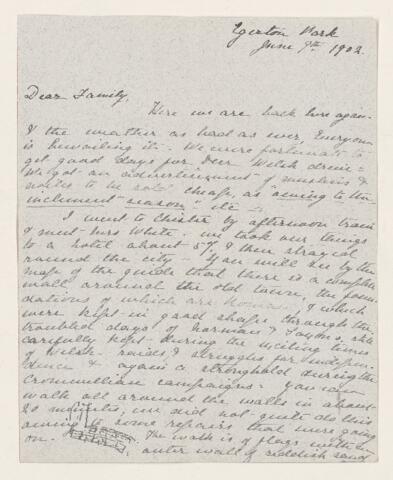 Egerton Park
June 9th 1902.
Dear Family,
Here we are back here again
& the weather as bad as ever, Everyone
is bewailing it. We were fortunate to
get good days for our Welsh drive -
We got an advertisement of muslins &
to be sold cheap, as "owing to the
inclement season" etc -
I went to Chester by afternoon train
& met Mrs White. We took our things
to a hotel about 5 & then strayed
round the city - You will see by the
map of the guide that there is a complete
wall around the old town, the foun-
dations of which are Roman, & which
were kept in good shape through the
troubled days of Normans & Saxons, still
carefully kept during the exciting times
of Welsh raids & struggles for indepen-
dence & again a stronghold during the
Cromwellian campaigns - You can
walk all around the walls in about
20 minutes, we did not quite do this
owing to some repairs that were going
on. The walk is of flags with an
outer wall of reddish sand